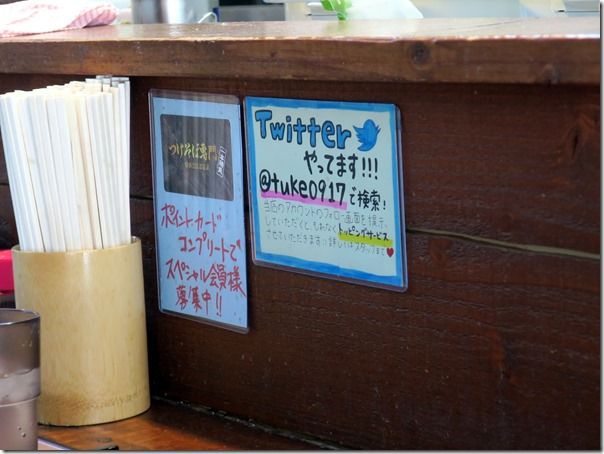 つけそば専門
ポイントカード
コンプリートで
スペシャル会員様
募集中!!
Twitter
やってます!!!
@tuke0917で検索!
当店のアカウントのフォロー画面を提示
していただくと、もれなくトッピングサービス
させていただきます!!詳しくはスタッフまで♥